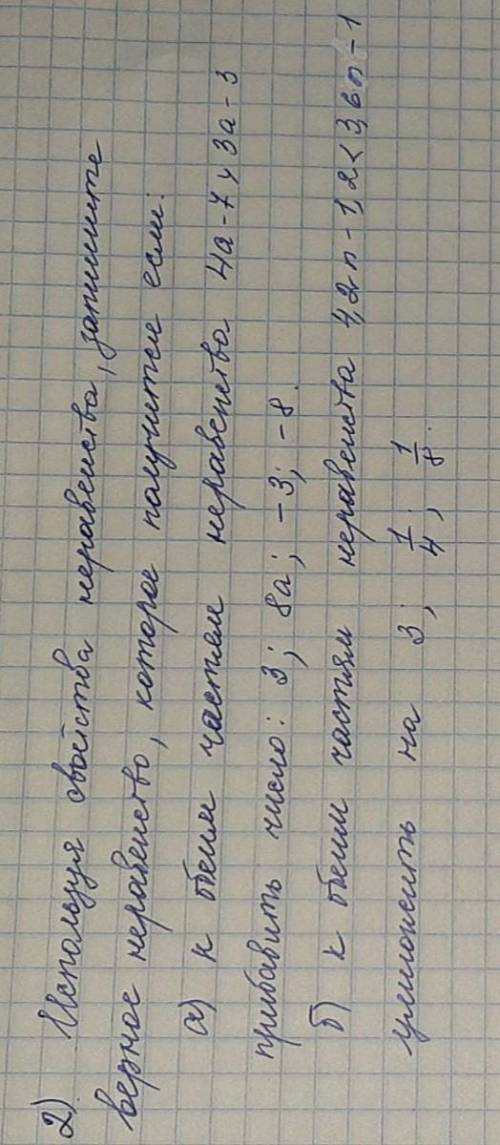 2) Используя свойства неравенства, запишите
верное неравенство, которое получится если:
а) к обеим частям неравенства 4a-7 > 3a-3
прибавить число: 3; 8a; -3; -8.
б) к обеим частям неравенства 4,2n-1,2<3,6n-1
умножить на 3; 1/4; 1/8.